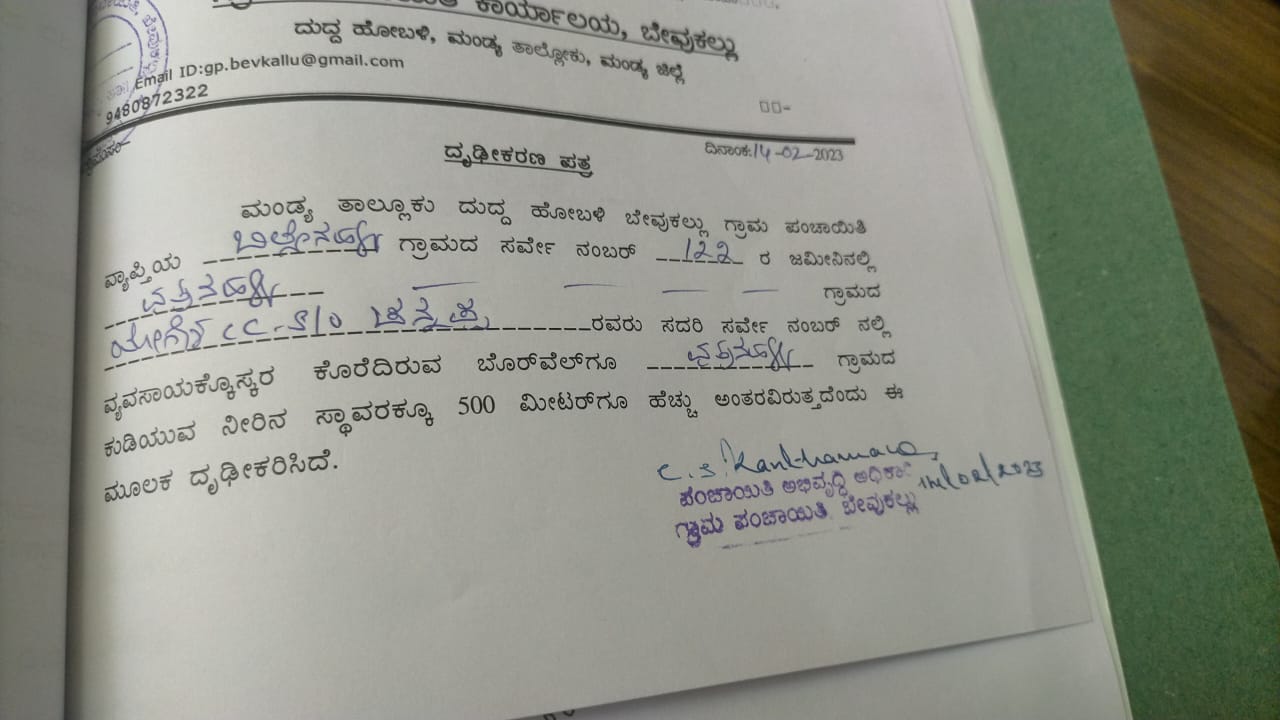 ಕಾರ್ಯಾಲಯ, ಬೇವುಕಲ್ಲು
ದುದ್ದ ಹೋಬಳಿ, ಮಂಡ್ಯ ತಾಲ್ಲೋಕು, ಮಂಡ್ಯ ಜಿಲ್ಲೆ
Email ID:gp.bevkallu@gmail.com
9480872322
ದಿನಾಂಕ:14-02-2023
ದೃಢೀಕರಣ ಪತ್ರ
ಮಂಡ್ಯ ತಾಲ್ಲೂಕು ದುದ್ದ ಹೋಬಳಿ ಬೇವುಕಲ್ಲು ಗ್ರಾಮ ಪಂಚಾಯಿತಿ
ವ್ಯಾಪ್ತಿಯ ಗ್ರಾಮದ ಸರ್ವೇ ನಂಬರ್ 122 ರ ಜಮೀನಿನಲ್ಲಿ
ಗ್ರಾಮದ
S/O ರವರು ಸದರಿ ಸರ್ವೇ ನಂಬರ್ ನಲ್ಲಿ
ವ್ಯವಸಾಯಕ್ಕೊಸ್ಕರ ಕೊರೆದಿರುವ ಬೊರ್‌ವೆಲ್‌ಗೂ ಗ್ರಾಮದ
ಕುಡಿಯುವ ನೀರಿನ ಸ್ಥಾವರಕ್ಕೂ 500 ಮೀಟರ್‌ಗೂ ಹೆಚ್ಚು ಅಂತರವಿರುತ್ತದೆಂದು ಈ
ಮೂಲಕ ದೃಢೀಕರಿಸಿದೆ.
14/02/2023
ಪಂಚಾಯಿತಿ ಅಭಿವೃದ್ಧಿ
ಗ್ರಾಮ ಪಂಚಾಯಿತಿ ಬೇವುಕಲ್ಲು